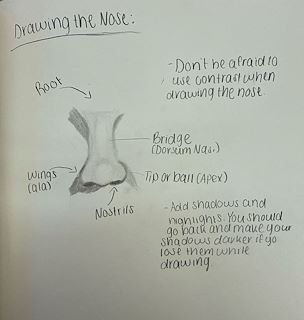 Drawing the Nose:
-Don't be afraid to
use contrast when
drawing the nose.
Root
Bridge
(Dorsum Nasi)
Wings
(ala)
Tip or ball (Apex)
Nostrils
-Add shadows and
highlights. You should
go back and make your
shadows darker if yo
lose them while
drawing.